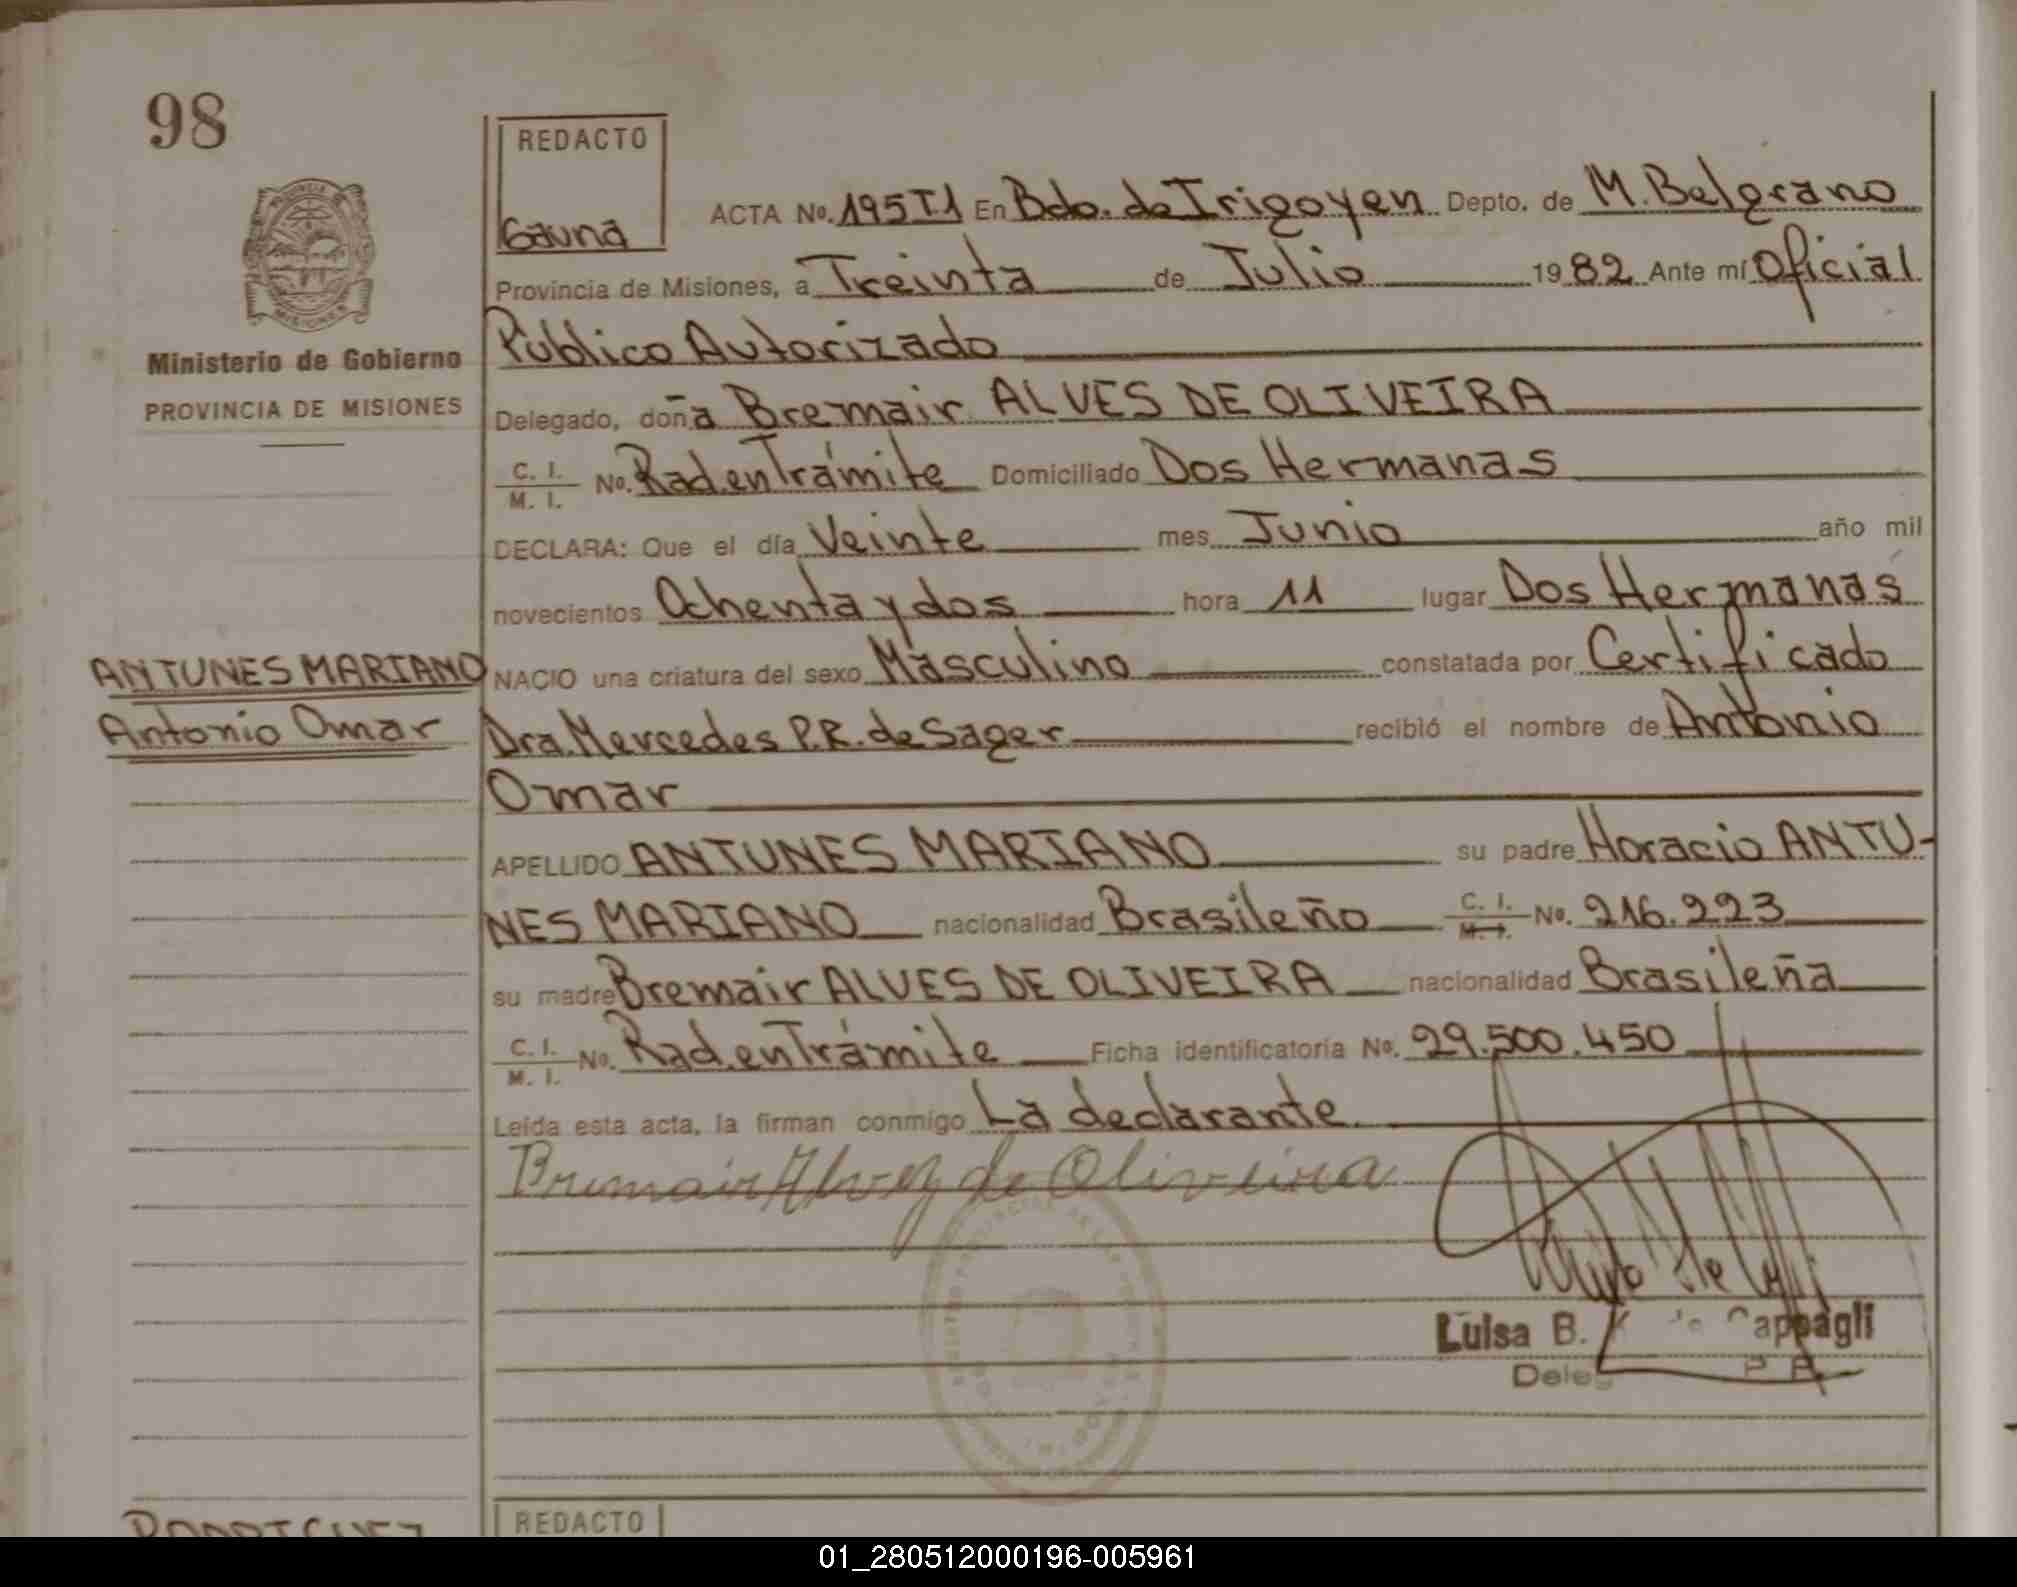 98
REDACTO
Gauna
PROVINCIA DE
MISIONES
Ministerio de Gobierno
PROVINCIA DE MISIONES
ACTA No. 195T1 En Bdo. de Irigoyen Depto. de M. Belgrano
Provincia de Misiones, a Treinta de Julio 1982 Ante mí Oficial
Público Autorizado
Delegado, doña Bremair ALVES DE OLIVEIRA
C. I. M. I. No. Rad. en Trámite Domiciliado Dos Hermanas
DECLARA: Que el día Veinte mes Junio año mil
novecientos Ochenta y dos hora 11 lugar Dos Hermanas
ANTUNES MARIANO
Antonio Omar
NACIO una criatura del sexo Masculino constatada por Certificado
Dra. Mercedes P.R. de Sager recibió el nombre de Antonio
Omar
APELLIDO ANTUNES MARIANO su padre Horacio ANTU-
NES MARIANO nacionalidad Brasileño C. I. M. I. No. 216.223
su madre Bremair ALVES DE OLIVEIRA nacionalidad Brasileña
C. I. M. I. No. Rad. en Trámite Ficha identificatoria No. 29.500.450
Leída esta acta, la firman conmigo La declarante
Bremair Alvez de Oliveira
Luisa B. de Cappagli
REDACTO
RODRIGUEZ
01_280512000196-005961